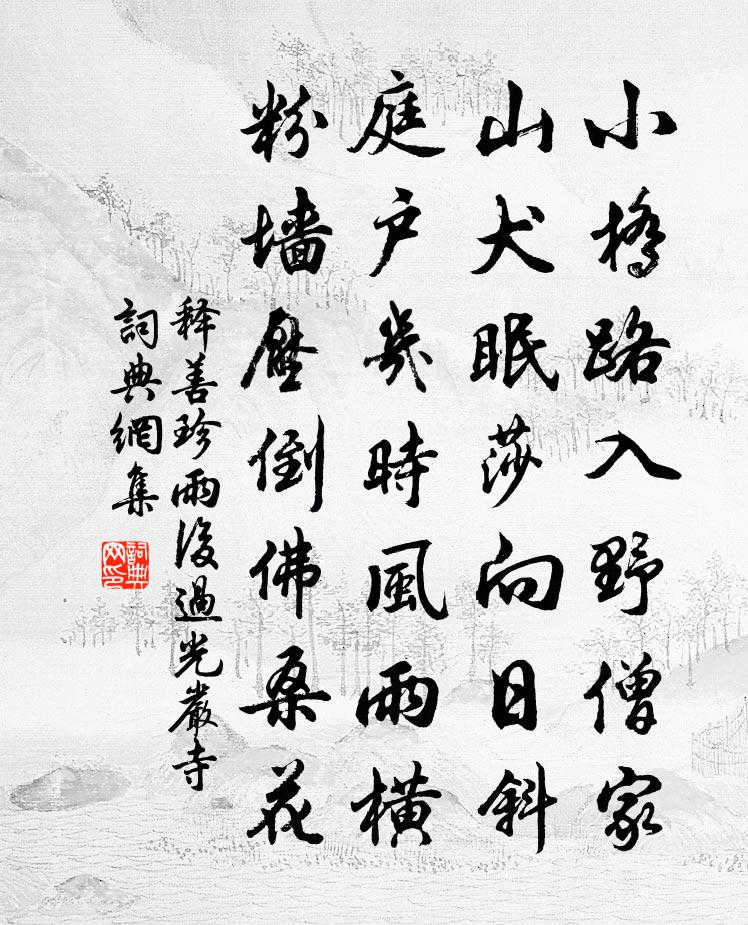 小橋路入野僧家
山犬眠莎向日斜
庭户幾時風雨橫
粉墻壓倒佛桑花
释善珍雨後過光巖寺
詞典網集
詞典
网印